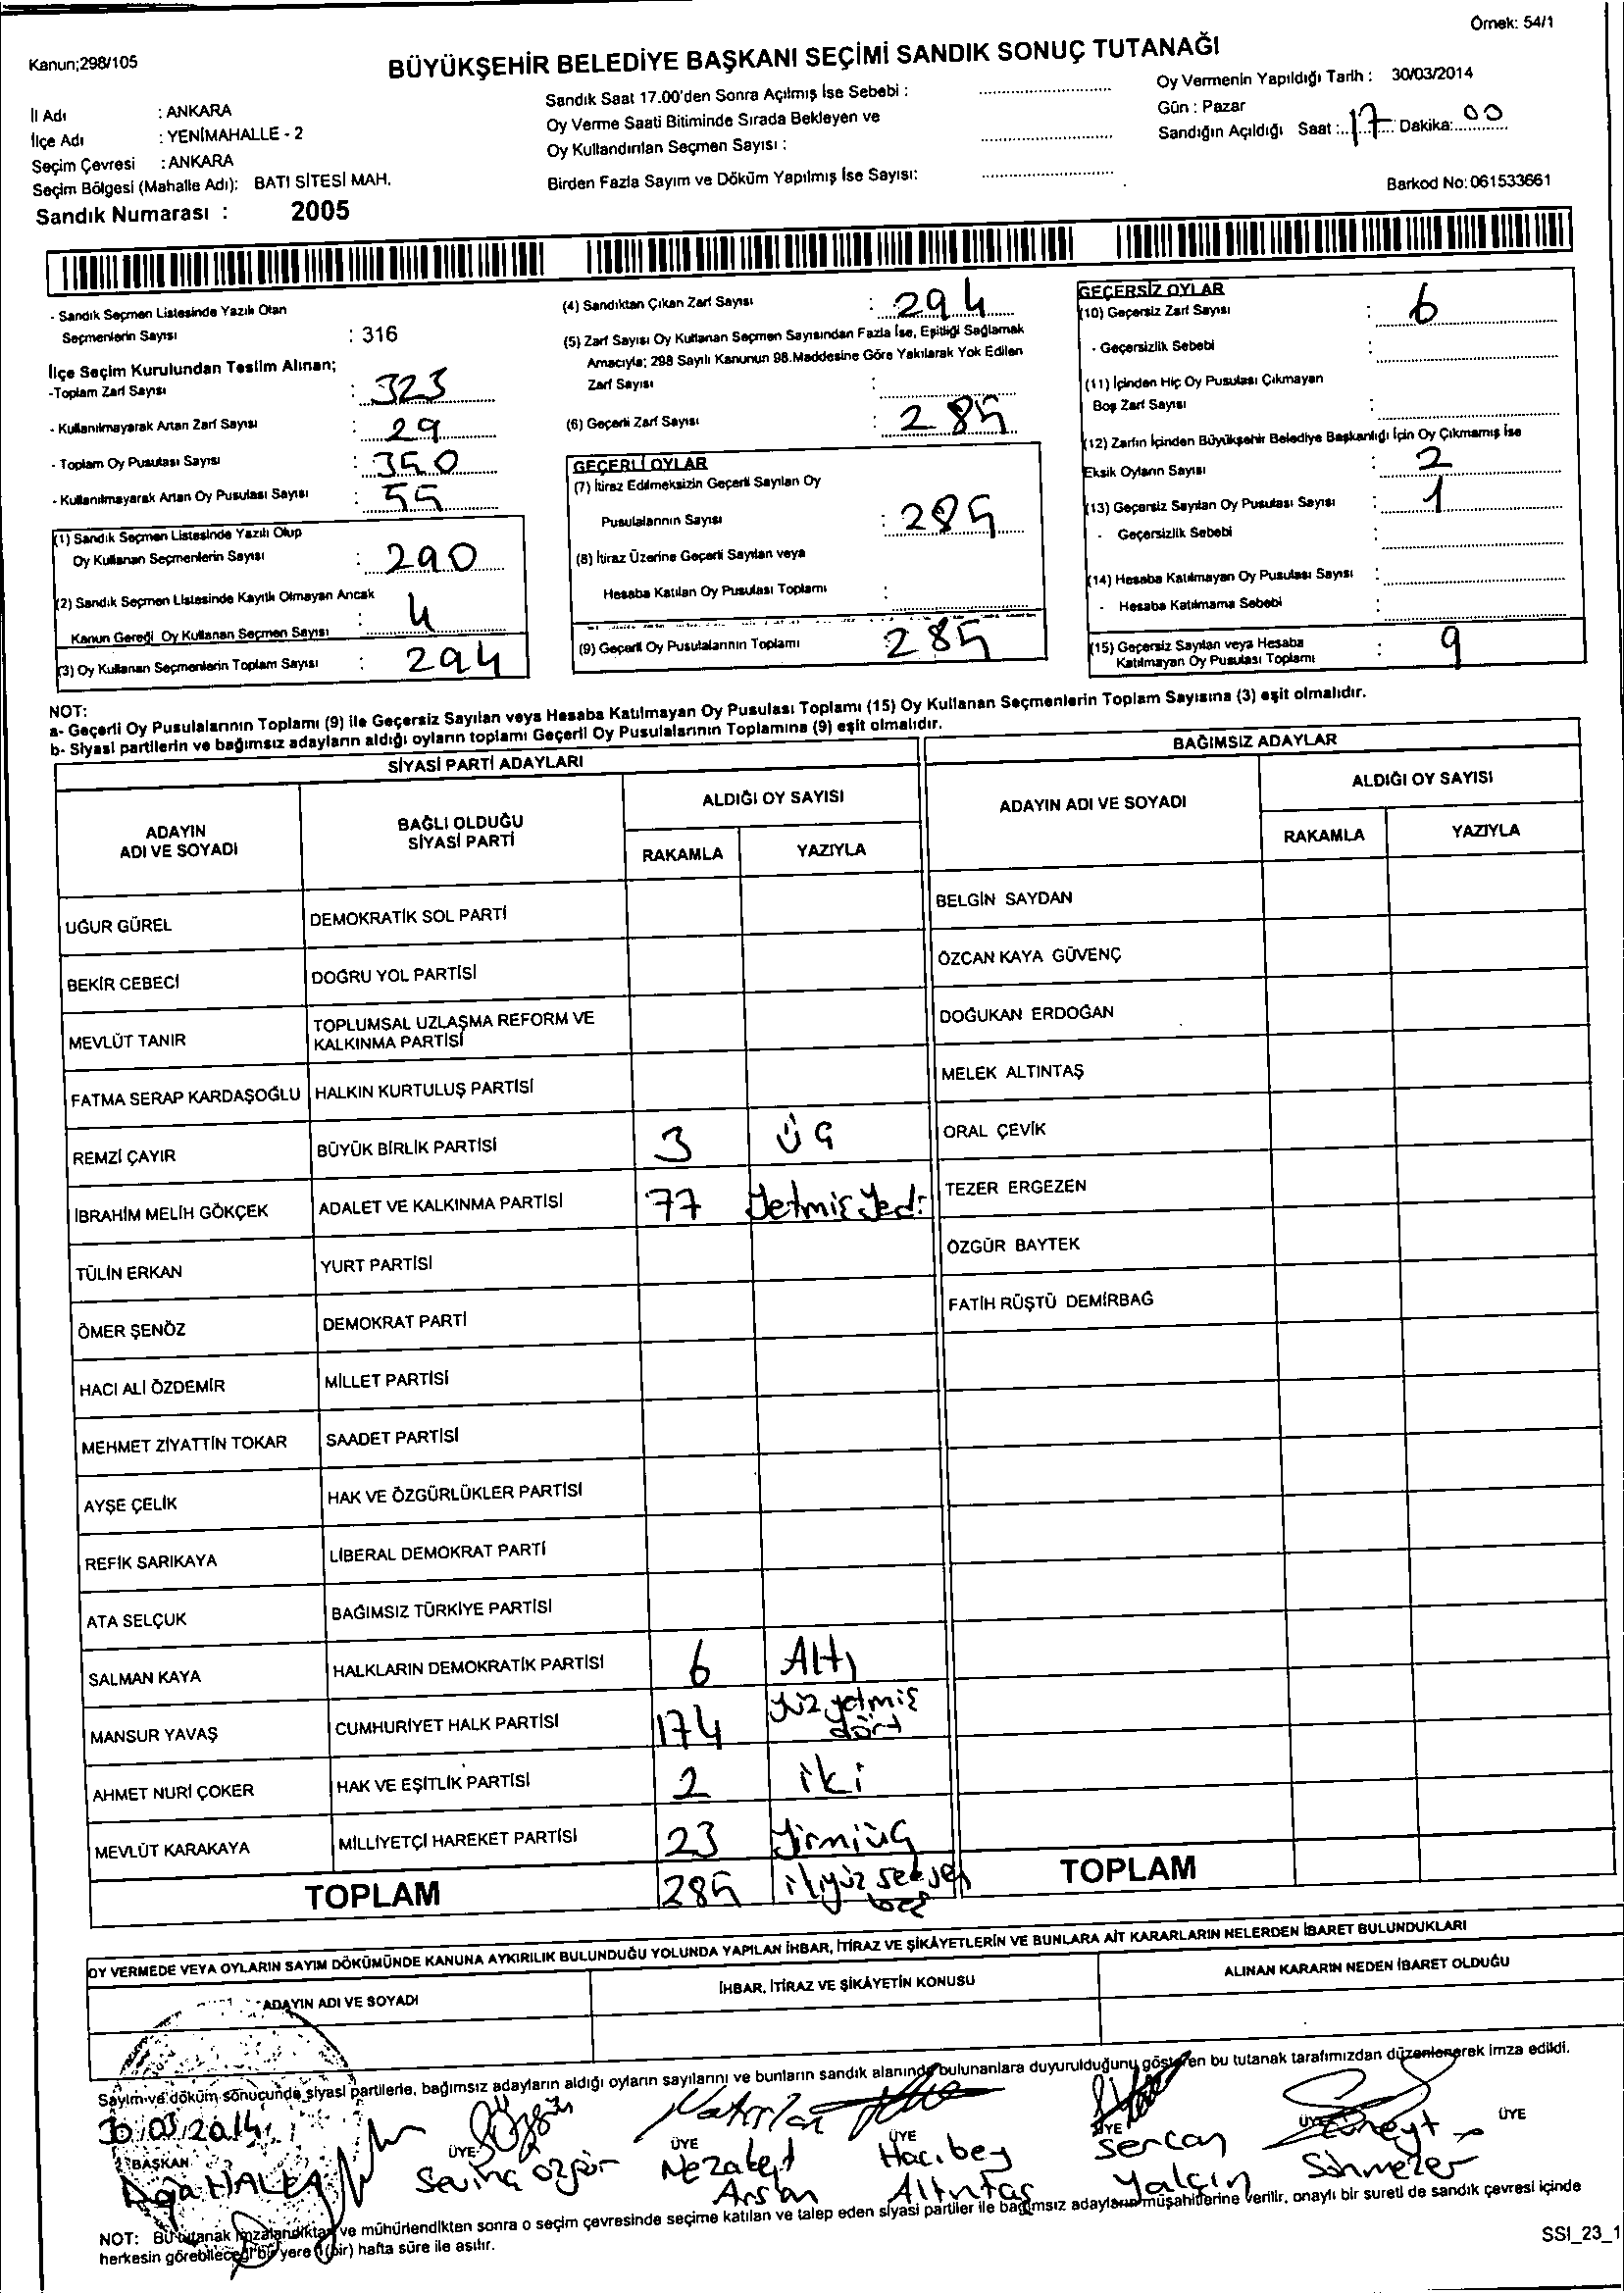 Örnek: 54/1
Kanun;298/105
BÜYÜKŞEHİR BELEDİYE BAŞKANI SEÇİMİ SANDIK SONUÇ TUTANAĞI
İl Adı : ANKARA
İlçe Adı : YENİMAHALLE - 2
Seçim Çevresi : ANKARA
Seçim Bölgesi (Mahalle Adı): BATI SİTESİ MAH.
Sandık Numarası : 2005
Sandık Saat 17.00'den Sonra Açılmış İse Sebebi :
Oy Verme Saati Bitiminde Sırada Bekleyen ve
Oy Kullandırılan Seçmen Sayısı :
Birden Fazla Sayım ve Döküm Yapılmış İse Sayısı:
Oy Vermenin Yapıldığı Tarih : 30/03/2014
Gün : Pazar
Sandığın Açıldığı Saat : 17 Dakika: 00
Barkod No: 061533661
- Sandık Seçmen Listesinde Yazılı Olan
Seçmenlerin Sayısı : 316
İlçe Seçim Kurulundan Teslim Alınan;
-Toplam Zarf Sayısı : 323
- Kullanılmayarak Artan Zarf Sayısı : 29
- Toplam Oy Pusulası Sayısı : 350
- Kullanılmayarak Artan Oy Pusulası Sayısı : 55
(1) Sandık Seçmen Listesinde Yazılı Olup
Oy Kullanan Seçmenlerin Sayısı : 290
(2) Sandık Seçmen Listesinde Kayıtlı Olmayan Ancak
Kanun Gereği Oy Kullanan Seçmen Sayısı : 4
(3) Oy Kullanan Seçmenlerin Toplam Sayısı : 294
(4) Sandıktan Çıkan Zarf Sayısı : 294
(5) Zarf Sayısı Oy Kullanan Seçmen Sayısından Fazla İse, Eşitliği Sağlamak
Amacıyla; 298 Sayılı Kanunun 98.Maddesine Göre Yakılarak Yok Edilen
Zarf Sayısı :
(6) Geçerli Zarf Sayısı : 285
GEÇERLİ OYLAR
(7) İtiraz Edilmeksizin Geçerli Sayılan Oy
Pusulalarının Sayısı : 285
(8) İtiraz Üzerine Geçerli Sayılan veya
Hesaba Katılan Oy Pusulası Toplamı :
(9) Geçerli Oy Pusulalarının Toplamı 285
GEÇERSİZ OYLAR
(10) Geçersiz Zarf Sayısı : 6
- Geçersizlik Sebebi :
(11) İçinden Hiç Oy Pusulası Çıkmayan
Boş Zarf Sayısı :
(12) Zarfın İçinden Büyükşehir Belediye Başkanlığı İçin Oy Çıkmamış İse
Eksik Oyların Sayısı : 2
(13) Geçersiz Sayılan Oy Pusulası Sayısı : 1
- Geçersizlik Sebebi :
(14) Hesaba Katılmayan Oy Pusulası Sayısı :
- Hesaba Katılmama Sebebi :
(15) Geçersiz Sayılan veya Hesaba
Katılmayan Oy Pusulası Toplamı : 9
NOT:
a- Geçerli Oy Pusulalarının Toplamı (9) ile Geçersiz Sayılan veya Hesaba Katılmayan Oy Pusulası Toplamı (15) Oy Kullanan Seçmenlerin Toplam Sayısına (3) eşit olmalıdır.
b- Siyasi partilerin ve bağımsız adayların aldığı oyların toplamı Geçerli Oy Pusulalarının Toplamına (9) eşit olmalıdır.
SİYASİ PARTİ ADAYLARI
ADAYIN ADI VE SOYADI
BAĞLI OLDUĞU SİYASİ PARTİ
ALDIĞI OY SAYISI
RAKAMLA YAZIYLA
UĞUR GÜREL DEMOKRATİK SOL PARTİ
BEKİR CEBECİ DOĞRU YOL PARTİSİ
MEVLÜT TANIR TOPLUMSAL UZLAŞMA REFORM VE
KALKINMA PARTİSİ
FATMA SERAP KARDAŞOĞLU HALKIN KURTULUŞ PARTİSİ
REMZİ ÇAYIR BÜYÜK BİRLİK PARTİSİ 3 ÜÇ
İBRAHİM MELİH GÖKÇEK ADALET VE KALKINMA PARTİSİ 77 Yetmiş Yedi
TÜLİN ERKAN YURT PARTİSİ
ÖMER ŞENÖZ DEMOKRAT PARTİ
HACI ALİ ÖZDEMİR MİLLET PARTİSİ
MEHMET ZİYATTİN TOKAR SAADET PARTİSİ
AYŞE ÇELİK HAK VE ÖZGÜRLÜKLER PARTİSİ
REFİK SARIKAYA LİBERAL DEMOKRAT PARTİ
ATA SELÇUK BAĞIMSIZ TÜRKİYE PARTİSİ
SALMAN KAYA HALKLARIN DEMOKRATİK PARTİSİ 6 Altı
MANSUR YAVAŞ CUMHURİYET HALK PARTİSİ 174 Yüz yetmiş
dört
AHMET NURİ ÇOKER HAK VE EŞİTLİK PARTİSİ 2 iki
MEVLÜT KARAKAYA MİLLİYETÇİ HAREKET PARTİSİ 23 Yirmiüç
TOPLAM 285 ikiyüz seksen
beş
BAĞIMSIZ ADAYLAR
ADAYIN ADI VE SOYADI
ALDIĞI OY SAYISI
RAKAMLA YAZIYLA
BELGİN SAYDAN
ÖZCAN KAYA GÜVENÇ
DOĞUKAN ERDOĞAN
MELEK ALTINTAŞ
ORAL ÇEVİK
TEZER ERGEZEN
ÖZGÜR BAYTEK
FATİH RÜŞTÜ DEMİRBAĞ
TOPLAM
OY VERMEDE VEYA OYLARIN SAYIM DÖKÜMÜNDE KANUNA AYKIRILIK BULUNDUĞU YOLUNDA YAPILAN İHBAR, İTİRAZ VE ŞİKÂYETLERİN VE BUNLARA AİT KARARLARIN NELERDEN İBARET BULUNDUKLARI
ADAYIN ADI VE SOYADI
İHBAR, İTİRAZ VE ŞİKÂYETİN KONUSU
ALINAN KARARIN NEDEN İBARET OLDUĞU
Sayım ve döküm sonucunda siyasi partilerle, bağımsız adayların aldığı oyların sayılarını ve bunların sandık alanında bulunanlara duyurulduğunu gösteren bu tutanak tarafımızdan düzenlenerek imza edildi.
30/03/2014
BAŞKAN ÜYE ÜYE ÜYE ÜYE ÜYE ÜYE
Sevinç Özgür
Nezaket
Arslan
Hacıbey
Altıntaş
Sercan
Yalçın
Sönmezer
NOT: Bu tutanak imzalandıktan ve mühürlendikten sonra o seçim çevresinde seçime katılan ve talep eden siyasi partiler ile bağımsız adayların müşahitlerine verilir, onaylı bir sureti de sandık çevresi içinde
herkesin görebileceği bir yere 1 (bir) hafta süre ile asılır.
SSI_23_1